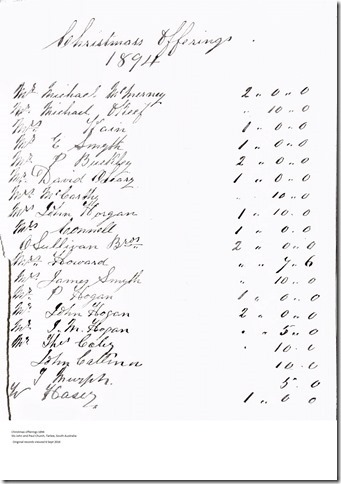 Christmas Offerings.
1894
Mr. Michael McMerney 2 " 0 " 0
Mr. Michael O'Keef " 10 - 0
Mrs 1 " 0 " 0
Mr E Smyth 1 " 0 " 0
Mr P Buckley 2 " 0 " 0
Mr. David O'Leary 1 " 0 " 0
Mrs McCarthy " 10 - 0
Mrs John Horgan 1 " 10 - 0
Mrs Connell 1 " 0 " 0
O Sullivan Bros 2 " 0 " 0
Mrs Howard " " 7 " 6
Mrs James Smyth " 10 - 0
Mr P Hogan 1 " 0 " 0
Mr John Hogan 2 " 0 " 0
Mr J. M. Hogan " 5 " 0
Mr Thos " 10 - 0
John 10 - 0
J Murph. 5 - 0
W Casey 1 " 0 - 0
Christmas offerings 1894
Sts John and Paul Church, Tarlee, South Australia
Original records viewed 8 Sept 2010